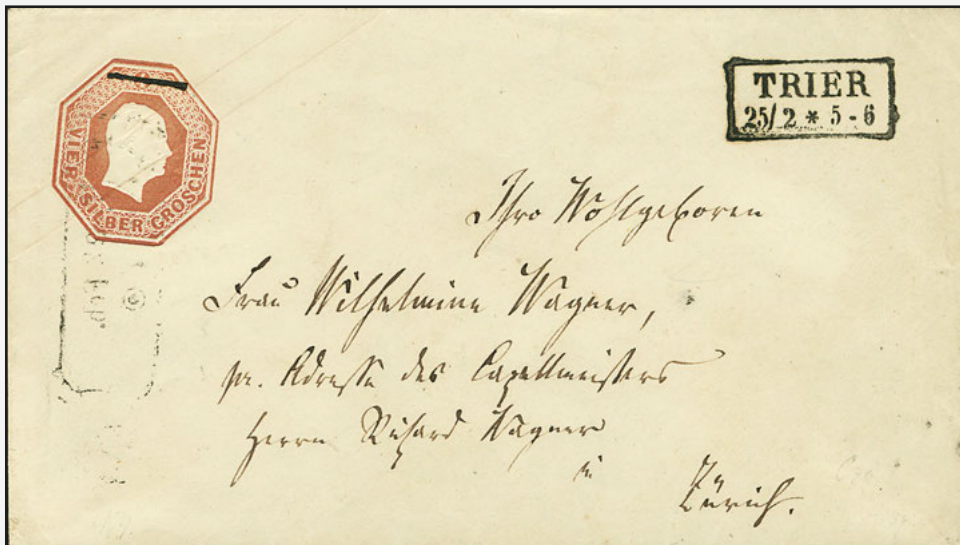 VIER SILBER GROSCHEN
TRIER
25/2 * 5-6
Ihro Wohlgeboren
Frau Wilhelmine Wagner,
pr. Adresse des Capellmeisters
Herrn Richard Wagner
in
Zürich.